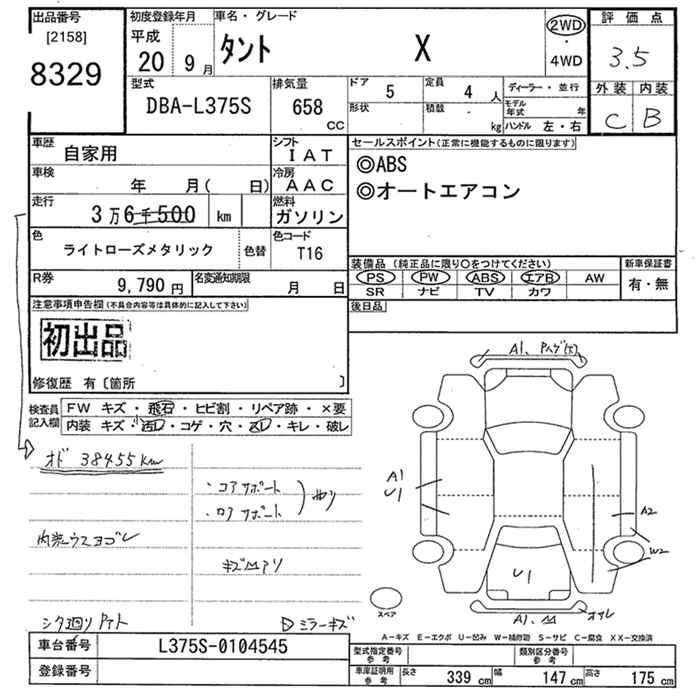 出品番号 [2158] 8329
初度登録年月 平成 20年 9月
車名・グレード タント X
2WD ・ 4WD
評価点 3.5
外装 内装
C B
型式 DBA-L375S
排気量 658 CC
ドア 5
定員 4 人
形状
積載 kg
ディーラー・並行
モデル年式 年
ハンドル 左・右
車歴 自家用
シフト IAT
車検 年 月( 日)
冷房 AAC
走行 3万6千500 km
燃料 ガソリン
色 ライトローズメタリック 色替
色コード T16
R券 9,790円
名変通知期限 月 日
セールスポイント(正常に機能するものに限ります)
◎ABS
◎オートエアコン
装備品 (純正品に限り○をつけてください)
PS PW ABS エアB AW
SR ナビ TV カワ
新車保証書 有・無
後日品
注意事項申告欄(不具合内容等は具体的に記入して下さい)
初出品
修復歴 有〔箇所 〕
検査員記入欄
FW キズ・飛石・ヒビ割・リペア跡・×要
内装 キズ・小汚レ・コゲ・穴・スレ・キレ・破レ
オド 38455km
・コアサポート
・ロアサポート
ヤリ
内装ウスヨゴレ
キズ凹アリ
ミラーキズ
A1、
A1
U1
A2
W2
U1
A1、凹
スペア
A-キズ E-エクボ U-凹み W-補修跡 S-サビ C-腐食 XX-交換済
車台番号 L375S-0104545
登録番号
型式指定番号 参考
類別区分番号 参考
車庫証明用 参考 長さ 339cm 幅 147cm 高さ 175cm